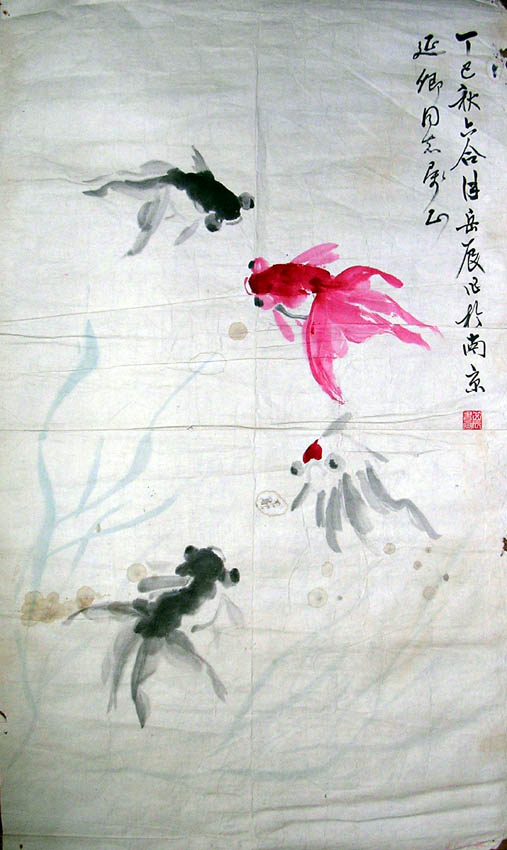 丁巳秋六合岳辰於南京
延卿同志属正